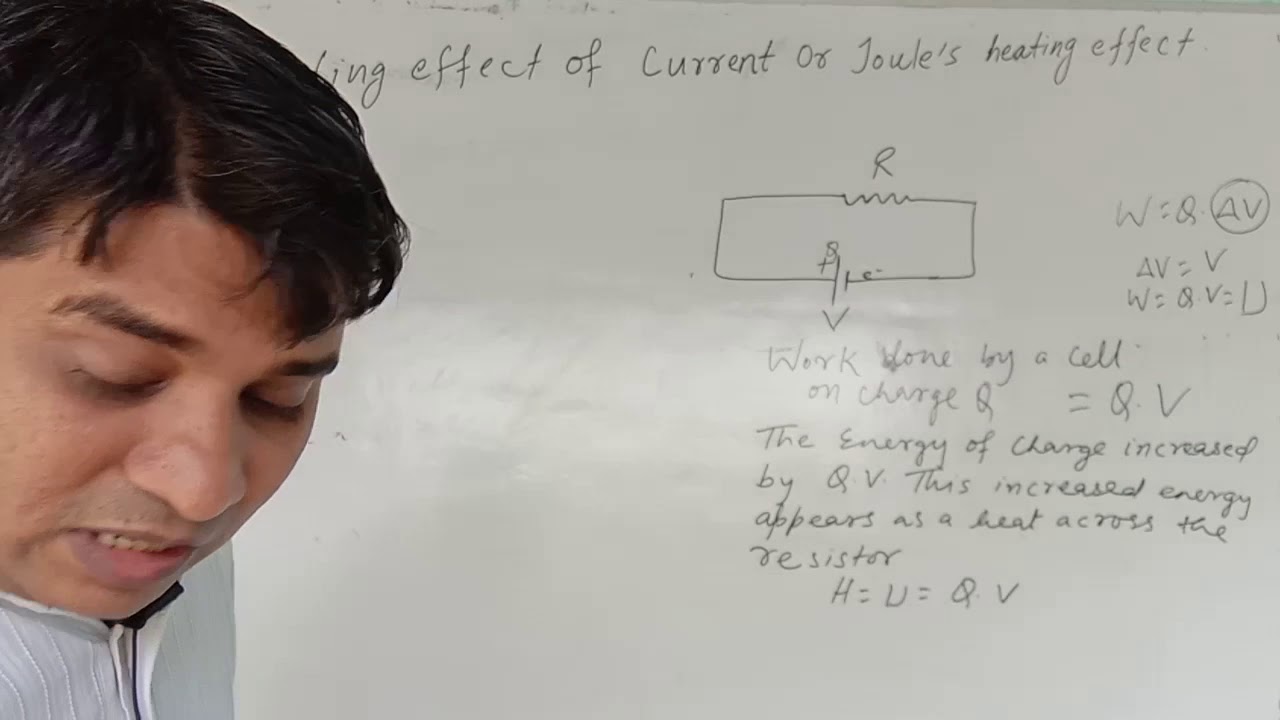 ting effect of Current Or Joule's heating effect.
R
W = Q. ΔV
ΔV = V
W = Q.V = U
V
Work done by a cell
on charge Q = Q.V
The Energy of Charge increased
by Q.V. This increased energy
appears as a heat across the
resistor
H = U = Q.V